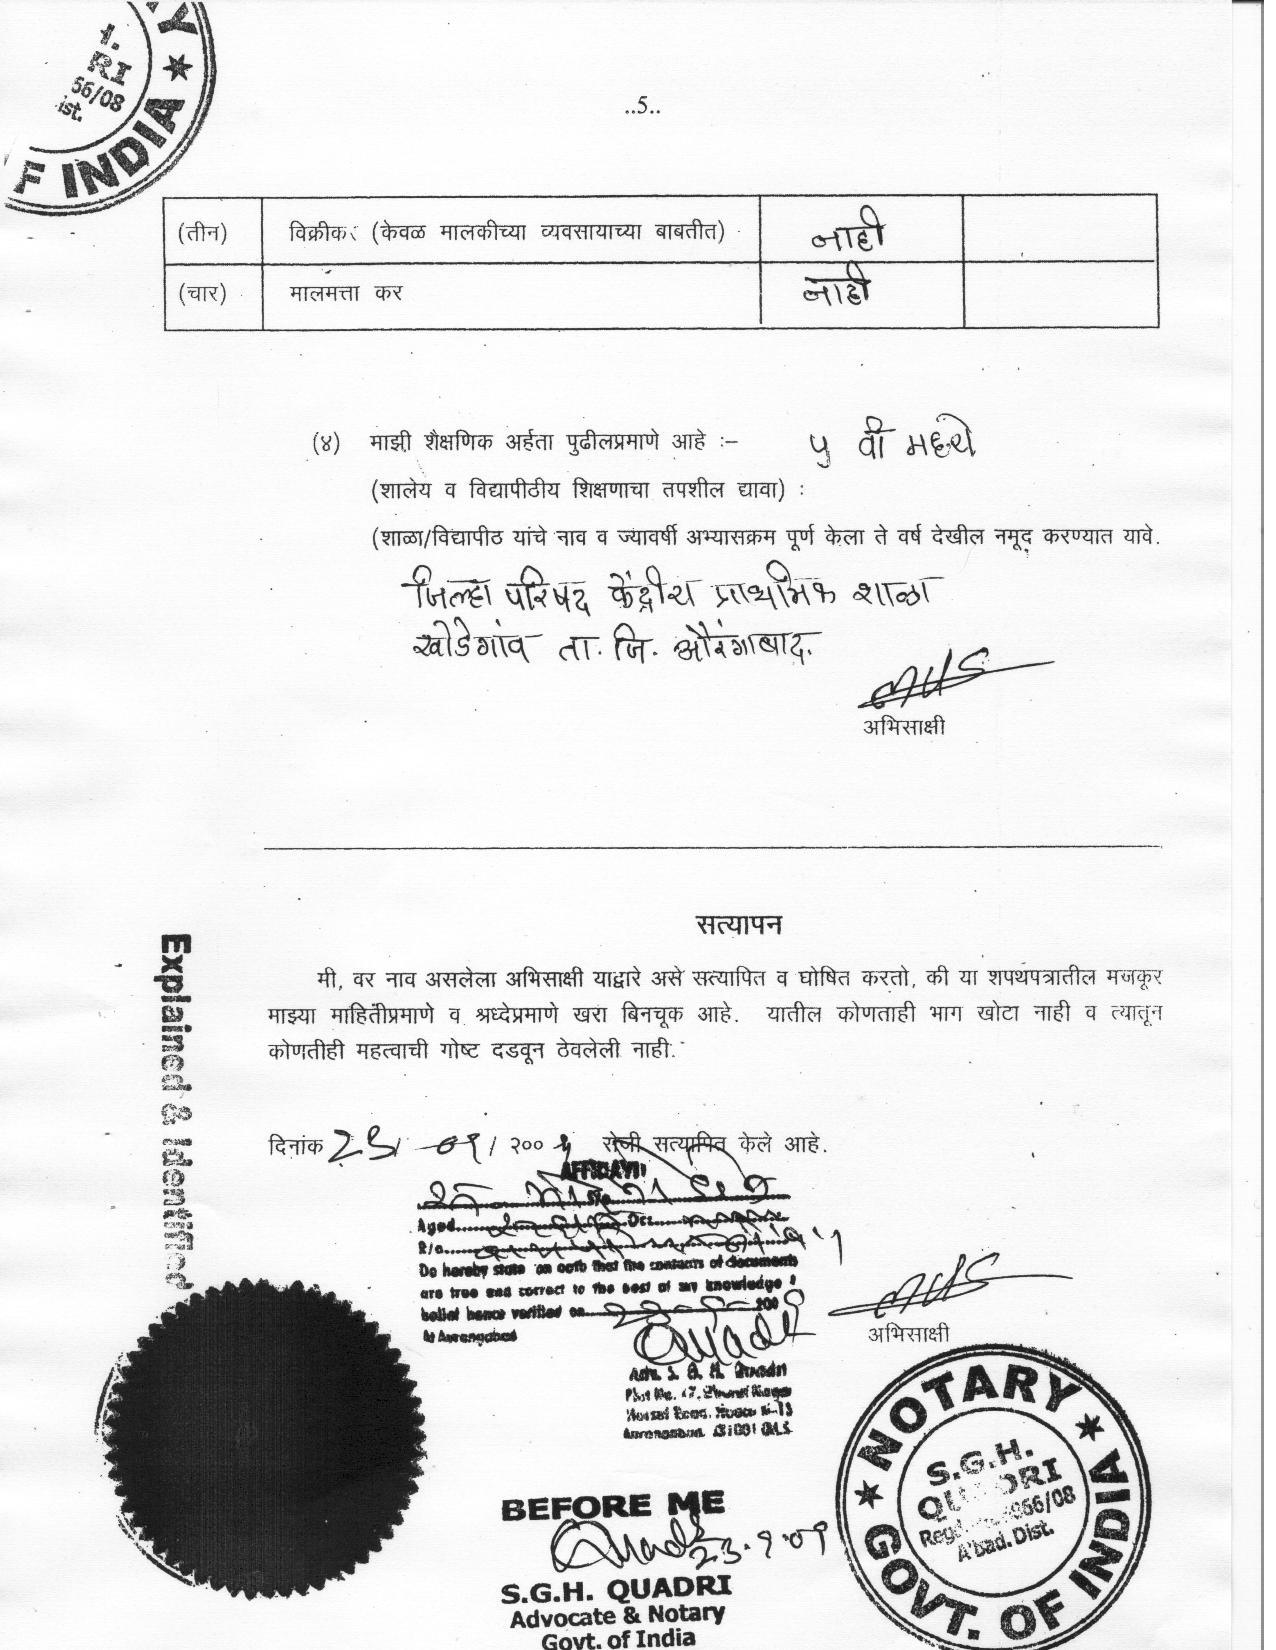 RI
66/08
ist.
F INDIA
..5..
(तीन) विक्रीकर (केवळ मालकीच्या व्यवसायाच्या बाबतीत) नाही
(चार) मालमत्ता कर नाही
(४) माझी शैक्षणिक अर्हता पुढीलप्रमाणे आहे :– वी मध्ये
(शालेय व विद्यापीठीय शिक्षणाचा तपशील द्यावा) :
(शाळा/विद्यापीठ यांचे नाव व ज्यावर्षी अभ्यासक्रम पूर्ण केला ते वर्ष देखील नमूद करण्यात यावे.
जिल्हा परिषद केंद्रीय प्राथमिक शाळा
खोडेगांव ता. जि. औरंगाबाद.
अभिसाक्षी
सत्यापन
मी, वर नाव असलेला अभिसाक्षी याद्वारे असे सत्यापित व घोषित करतो, की या शपथपत्रातील मजकूर
माझ्या माहितीप्रमाणे व श्रध्देप्रमाणे खरा बिनचूक आहे. यातील कोणताही भाग खोटा नाही व त्यातून
कोणतीही महत्वाची गोष्ट दडवून ठेवलेली नाही.
Explained & Identified
दिनांक / २०० रोजी सत्यापित केले आहे.
AFFIDAVIT
Aged Occ
R/o
Do hereby state on oath that the contacts of documents
are true and correct to the best of my knowledge &
belief hence verified on 200
At Aurangabad
अभिसाक्षी
Adv. S. G. H. Quadri
BEFORE ME
Quadri 23.9.09
S.G.H. QUADRI
Advocate & Notary
Govt. of India
NOTARY
S.G.H.
QUADRI
A'bad. Dist.
GOVT. OF INDIA